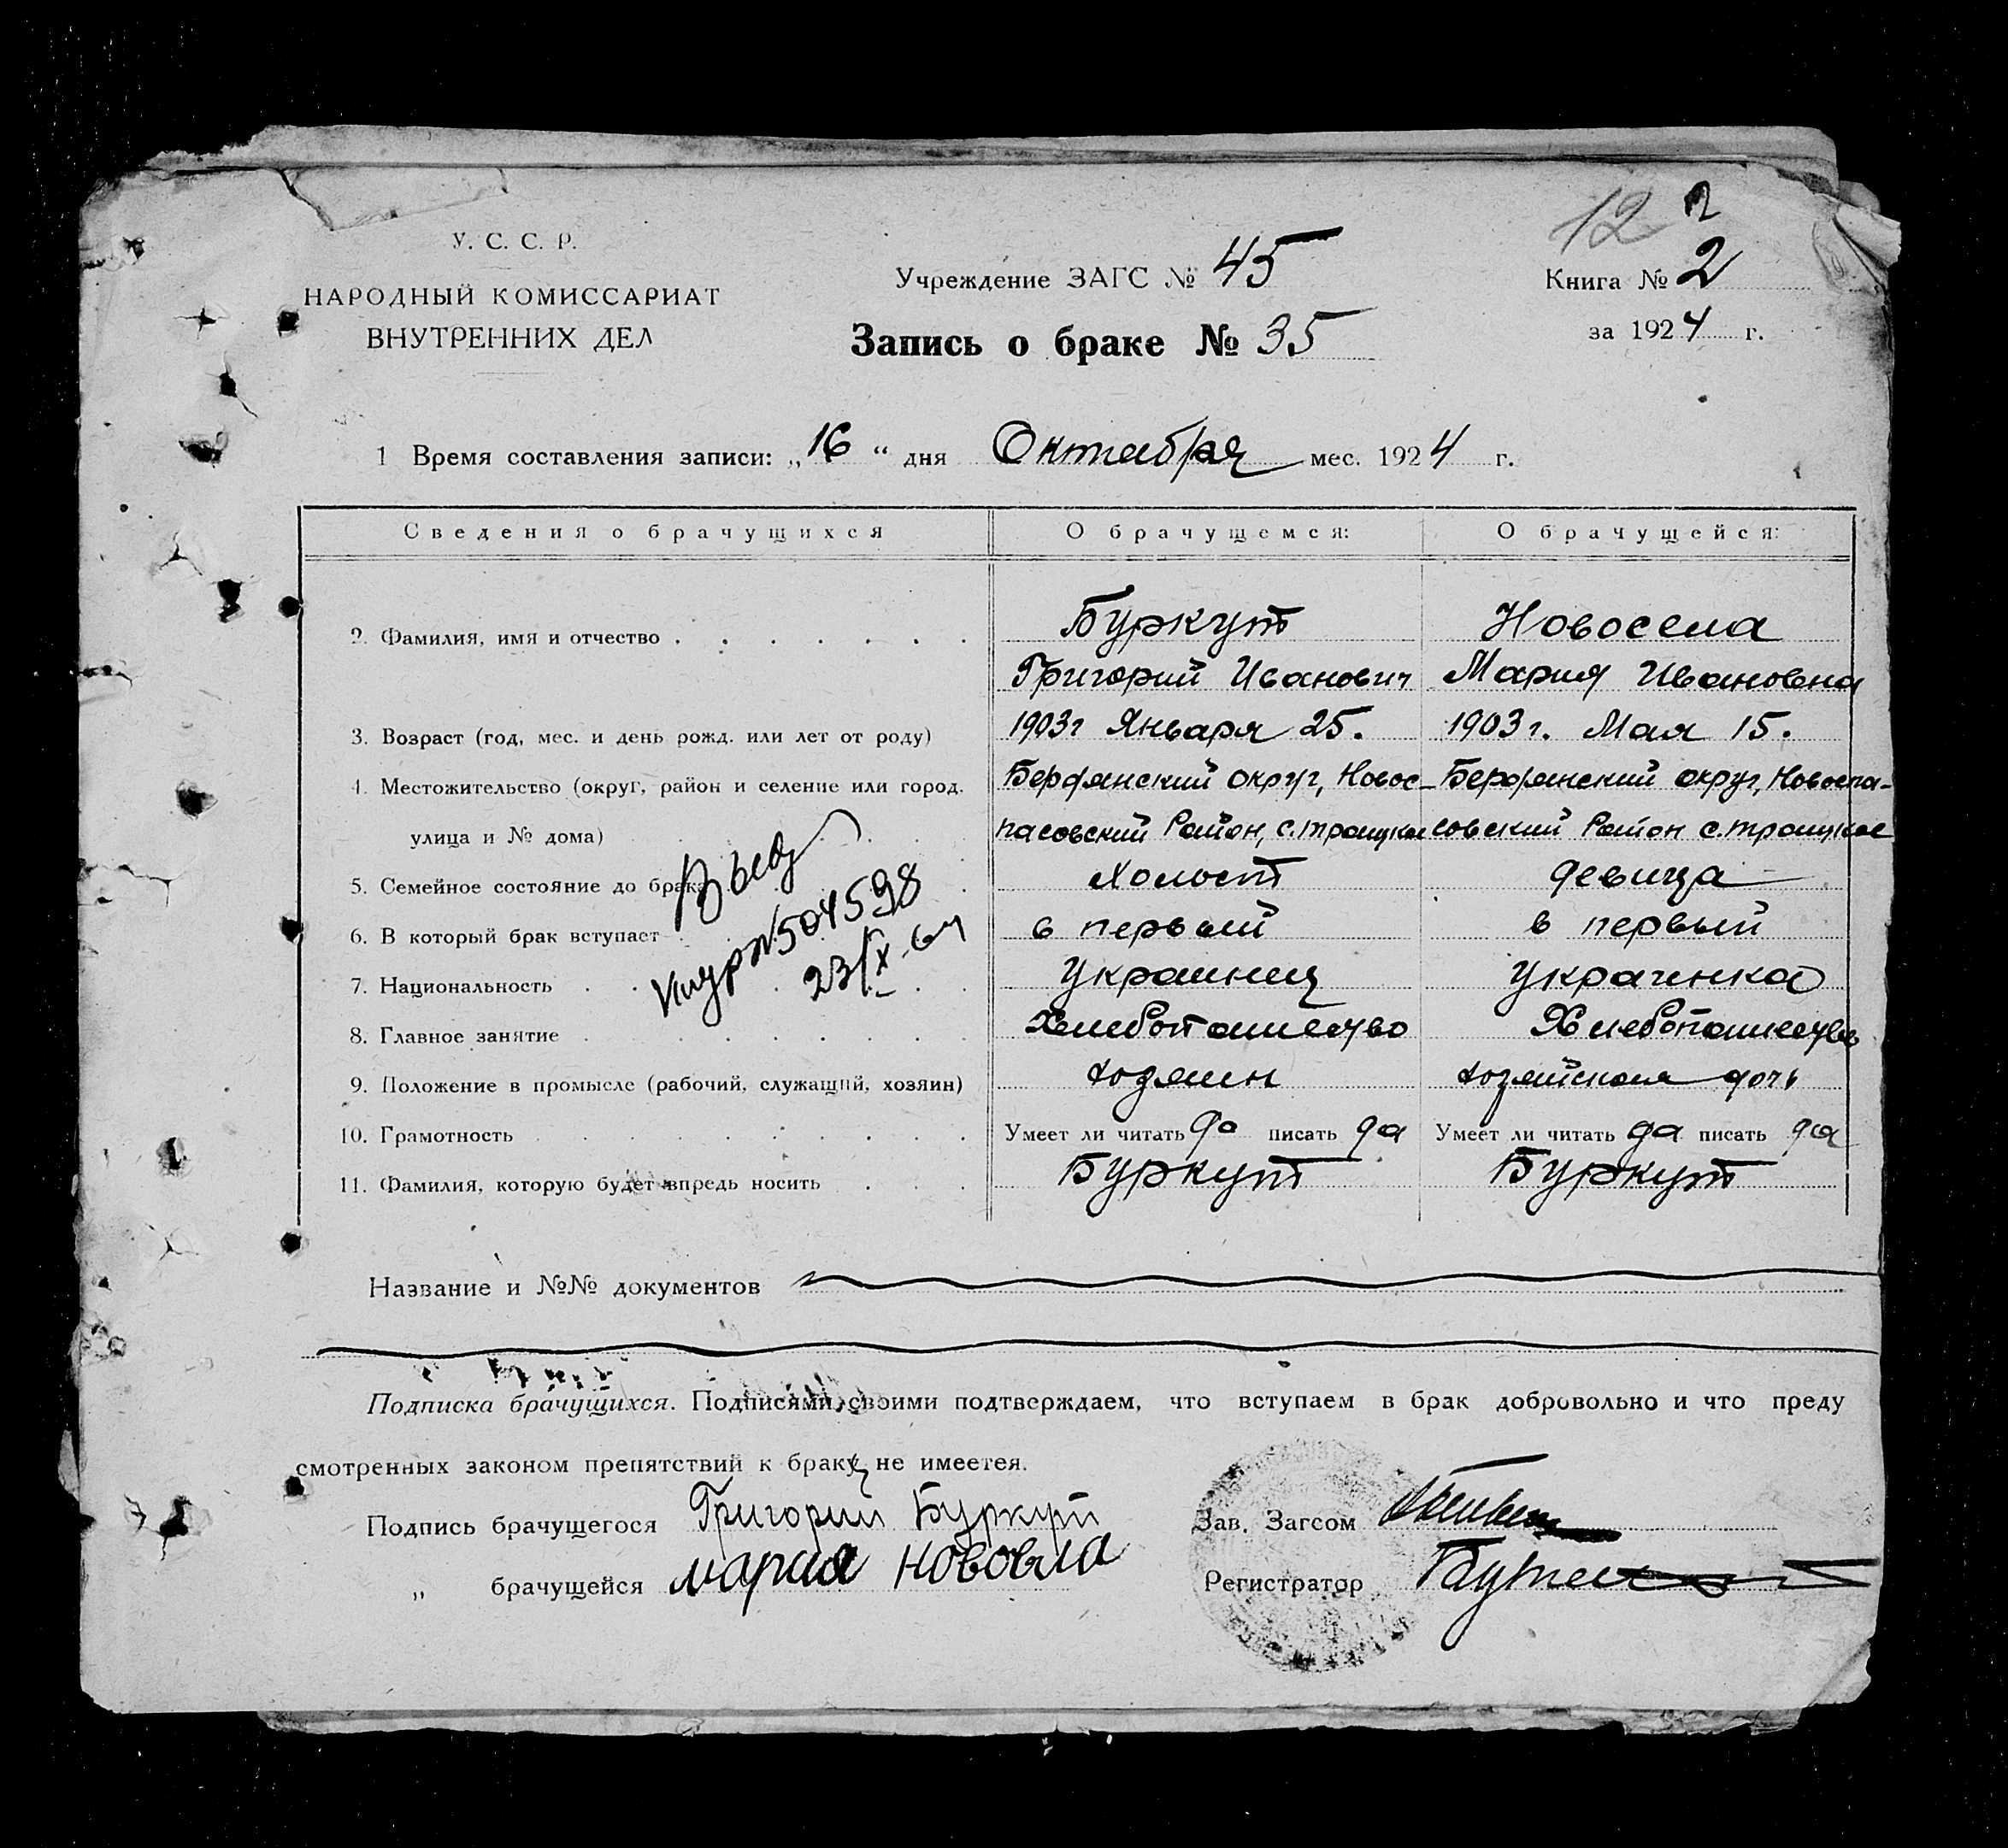 12 2
У. С. С. Р.
НАРОДНЫЙ КОМИССАРИАТ
ВНУТРЕННИХ ДЕЛ
Учреждение ЗАГС № 45
Книга № 2
Запись о браке № 35
за 1924 г.
1 Время составления записи: „16“ дня Октября мес. 1924 г.
Сведения о брачущихся О брачущемся: О брачущейся:
2. Фамилия, имя и отчество Буркут Новосела
Григорий Иванович Мария Ивановна
3. Возраст (год, мес. и день рожд. или лет от роду) 1903г Января 25. 1903г. Мая 15.
4. Местожительство (округ, район и селение или город, Бердянский округ, Новос- Бердянский округ, Новоспа-
улица и № дома) пасовский Район, с. троицкое совский Район с. троицкое
5. Семейное состояние до брака Холост девица
6. В который брак вступает в первый в первый
7. Национальность Украинец Украинка
8. Главное занятие Хлебопашество Хлебопашество
9. Положение в промысле (рабочий, служащий, хозяин) хозяин хозяйская дочь
10. Грамотность Умеет ли читать да писать да Умеет ли читать да писать да
11. Фамилия, которую будет впредь носить Буркут Буркут
№504598
23/X-64
Название и №№ документов
Подписка брачущихся. Подписями своими подтверждаем, что вступаем в брак добровольно и что преду
смотренных законом препятствий к браку не имеется.
Подпись брачущегося Григорий Буркут
Зав. Загсом
„ брачущейся мария
Регистратор